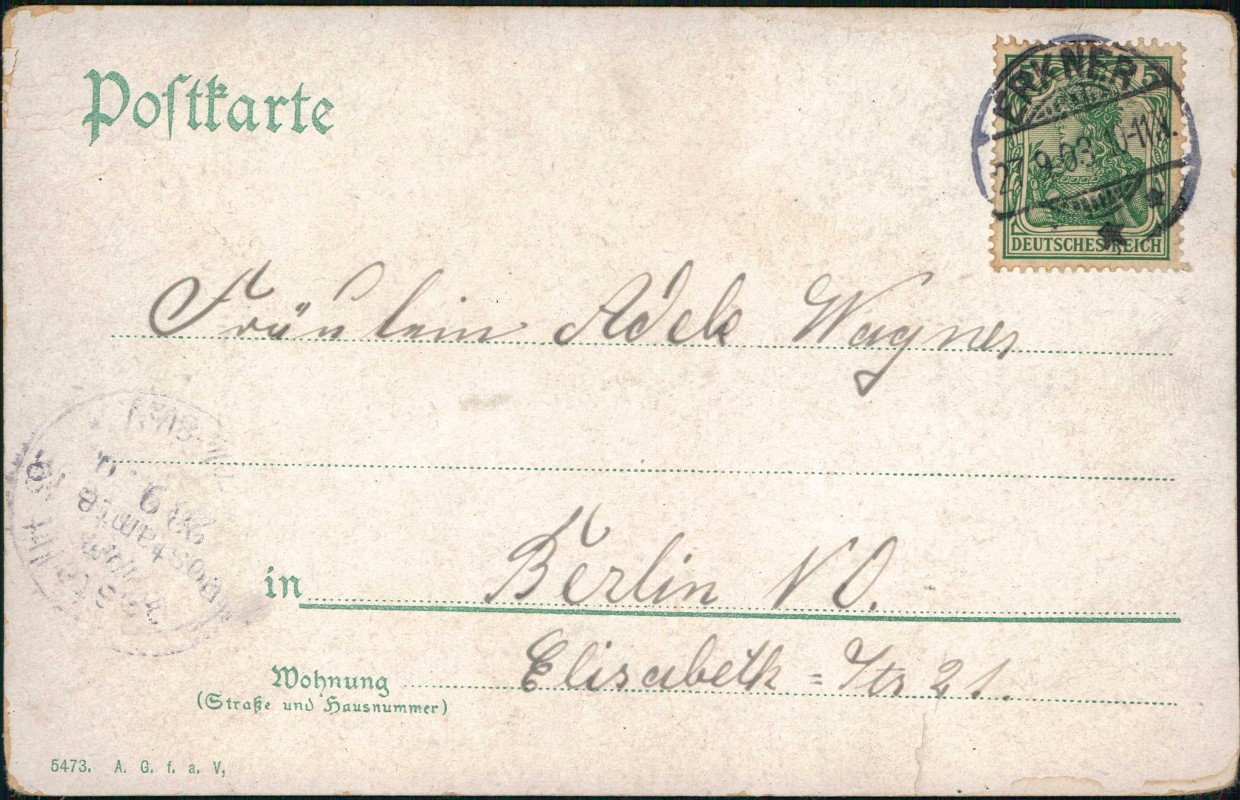 Postkarte
ERKNER
27.9.03. 0-11V.
5
DEUTSCHES REICH
Fräulein Adele Wagner
in Berlin NO.
Wohnung Elisabeth=Str 21.
(Straße und Hausnummer)
5473. A. G. f. a. V,